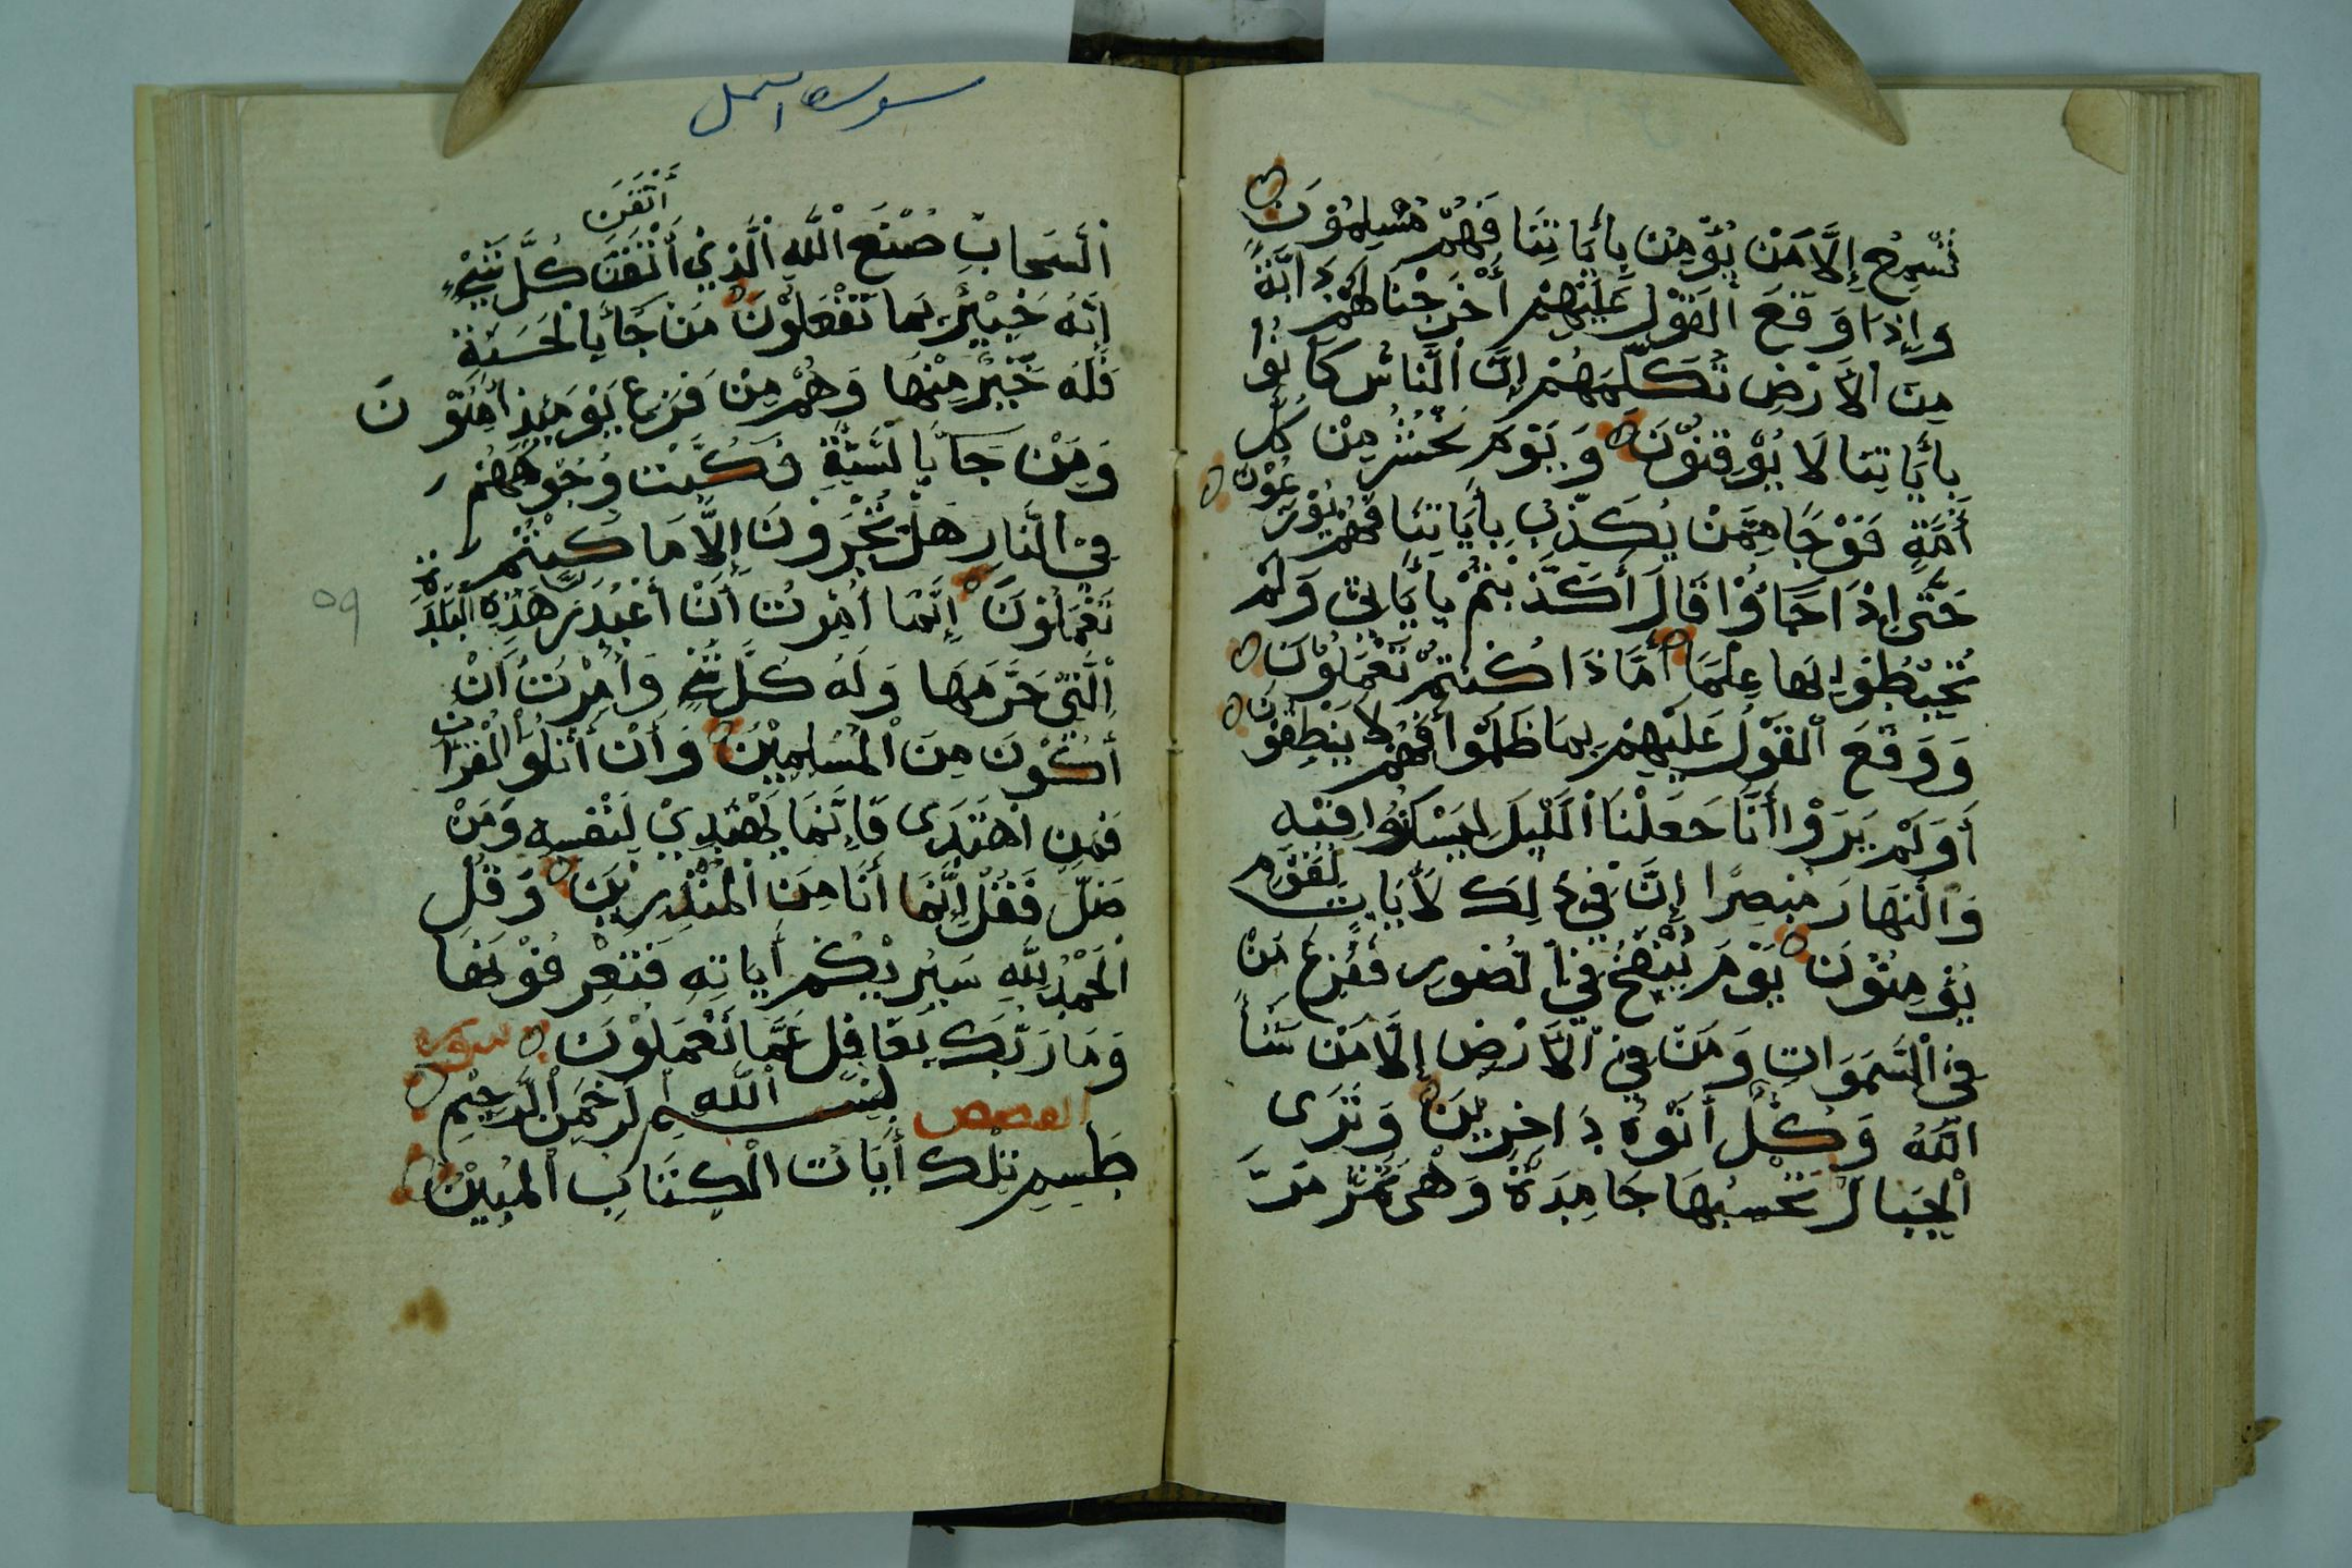 تُسْمِعُ إِلَّا مَنْ يُؤْمِنُ بِأَيَاتِنَا فَهُمْ مُسْلِمُوْنَ
وَإِذَا وَقَعَ الْقَوْلُ عَلَيْهِمْ أَخْرَجْنَا لَهُمْ دَابَّةً
مِنَ الْأَرْضِ تُكَلِّمُهُمْ إِنَّ النَّاسَ كَانُوْا
بِأَيَاتِنَا لَا يُوْقِنُوْنَ وَيَوْمَ نَحْشُرُ مِنْ كُلِّ
أُمَّةٍ فَوْجًا مِمَّنْ يُكَذِّبُ بِأَيَاتِنَا فَهُمْ يُوْزَعُوْنَ
حَتَّى إِذَا جَاؤُا قَالَ أَكَذَّبْتُمْ بِأَيَاتِيْ وَلَمْ
تُحِيْطُوْا بِهَا عِلْمًا أَمَّاذَا كُنْتُمْ تَعْمَلُوْنَ
وَوَقَعَ الْقَوْلُ عَلَيْهِمْ بِمَا ظَلَمُوْا فَهُمْ لَا يَنْطِقُوْنَ
أَوَلَمْ يَرَوْا أَنَّا جَعَلْنَا الَّيْلَ لِيَسْكُنُوْا فِيْهِ
وَالنَّهَارَ مُبْصِرًا إِنَّ فِيْ ذَلِكَ لَأَيَاتٍ لِقَوْمٍ
يُؤْمِنُوْنَ يَوْمَ يُنْفَخُ فِي الصُّوْرِ فَفَزِعَ مَنْ
فِي السَّمَوَاتِ وَمَنْ فِي الْأَرْضِ إِلَّا مَنْ شَأَ
اللَّهُ وَكُلٌّ أَتَوْهُ دَاخِرِيْنَ وَتَرَى
الْجِبَالَ تَحْسَبُهَا جَامِدَةً وَهْيَ تَمُرُّ مَرَّ
سورة النمل
أَتْقَنَ
السَّحَابِ صُنْعَ اللَّهِ الَّذِيْ أَتْقَنَ كُلَّ شَيْءٍ
إِنَّهُ خَبِيْرٌ بِمَا تَفْعَلُوْنَ مَنْ جَأَ بِالْحَسَنَةِ
فَلَهُ خَيْرٌ مِنْهَا وَهُمْ مِنْ فَزَعِ يَوْمَئِذٍ أَمِنُوْنَ
وَمَنْ جَأَ بِالسَّيِّئَةِ فَكُبَّتْ وُجُوْهُهُمْ
فِي النَّارِ هَلْ تُجْزَوْنَ إِلَّا مَا كُنْتُمْ
تَعْمَلُوْنَ إِنَّمَا أُمِرْتُ أَنْ أَعْبُدَ رَبَّ هَذِهِ الْبَلْدَةِ
الَّتِيْ حَرَّمَهَا وَلَهُ كُلُّ شَيْءٍ وَأُمِرْتُ أَنْ
أَكُوْنَ مِنَ الْمُسْلِمِيْنَ وَأَنْ أَتْلُوَا الْقُرْأَنَ
فَمَنِ اهْتَدَى فَإِنَّمَا يَهْتَدِيْ لِنَفْسِهِ وَمَنْ
ضَلَّ فَقُلْ إِنَّمَا أَنَا مِنَ الْمُنْذِرِيْنَ وَقُلِ
الْحَمْدُ لِلَّهِ سَيُرِيْكُمْ أَيَاتِهِ فَتَعْرِفُوْنَهَا
وَمَا رَبُّكَ بِغَافِلٍ عَمَّا تَعْمَلُوْنَ سورة
القصص بِسْمِ اللَّهِ الرَّحْمَنِ الرَّحِيْمِ
طَسِمِ تِلْكَ أَيَاتُ الْكِتَابِ الْمُبِيْنِ
٥٩